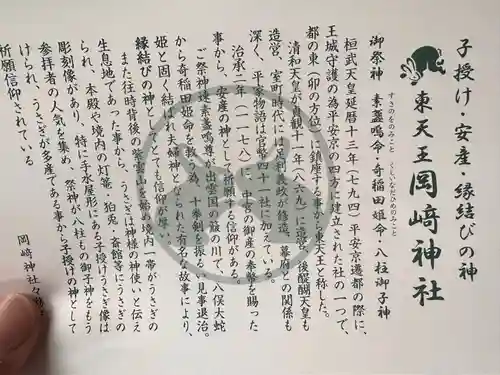 子授け・安産・縁結びの神
東天王岡﨑神社
すさのをのみこと くしいなだひめのみこと
御祭神 素盞嗚命・奇稲田姫命・八柱御子神
桓武天皇延暦十三年（七九四）平安京遷都の際に、
王城守護の為平安京の四方に建立された社の一つで、
都の東（卯の方位）に鎮座する事から東天王と称した。
清和天皇が貞観十一年（八六九）に造営、後醍醐天皇も
造営、室町時代には足利義政が修造、幕府との関係も
深く、平家物語は官幣二十一社に加えている。
治承二年（一一七八）に、中宮の御産の奉幣を賜った
事から、安産の神として祈願する信仰がある。
ご祭神速素盞嗚尊が出雲国の簸の川で、八俣大蛇
から奇稲田姫命を救う為、十拳剣を振るい見事退治。
姫と固く結ばれ夫婦神となられた有名な故事により、
縁結びの神としてとても信仰が厚い。
また往時背後の紫雲山を始め境内一帯がうさぎの
生息地であった事から、うさぎは神様の神使いと伝え
られ、本殿や境内の灯篭・狛兎・斎館等にうさぎの
彫刻像があり、特に手水屋形にある子授けうさぎ像は
参拝者の人気を集め、祭神が八柱もの御子神をもう
けられ、うさぎが多産である事から子授けの神として
祈願信仰されている
岡﨑神社々務